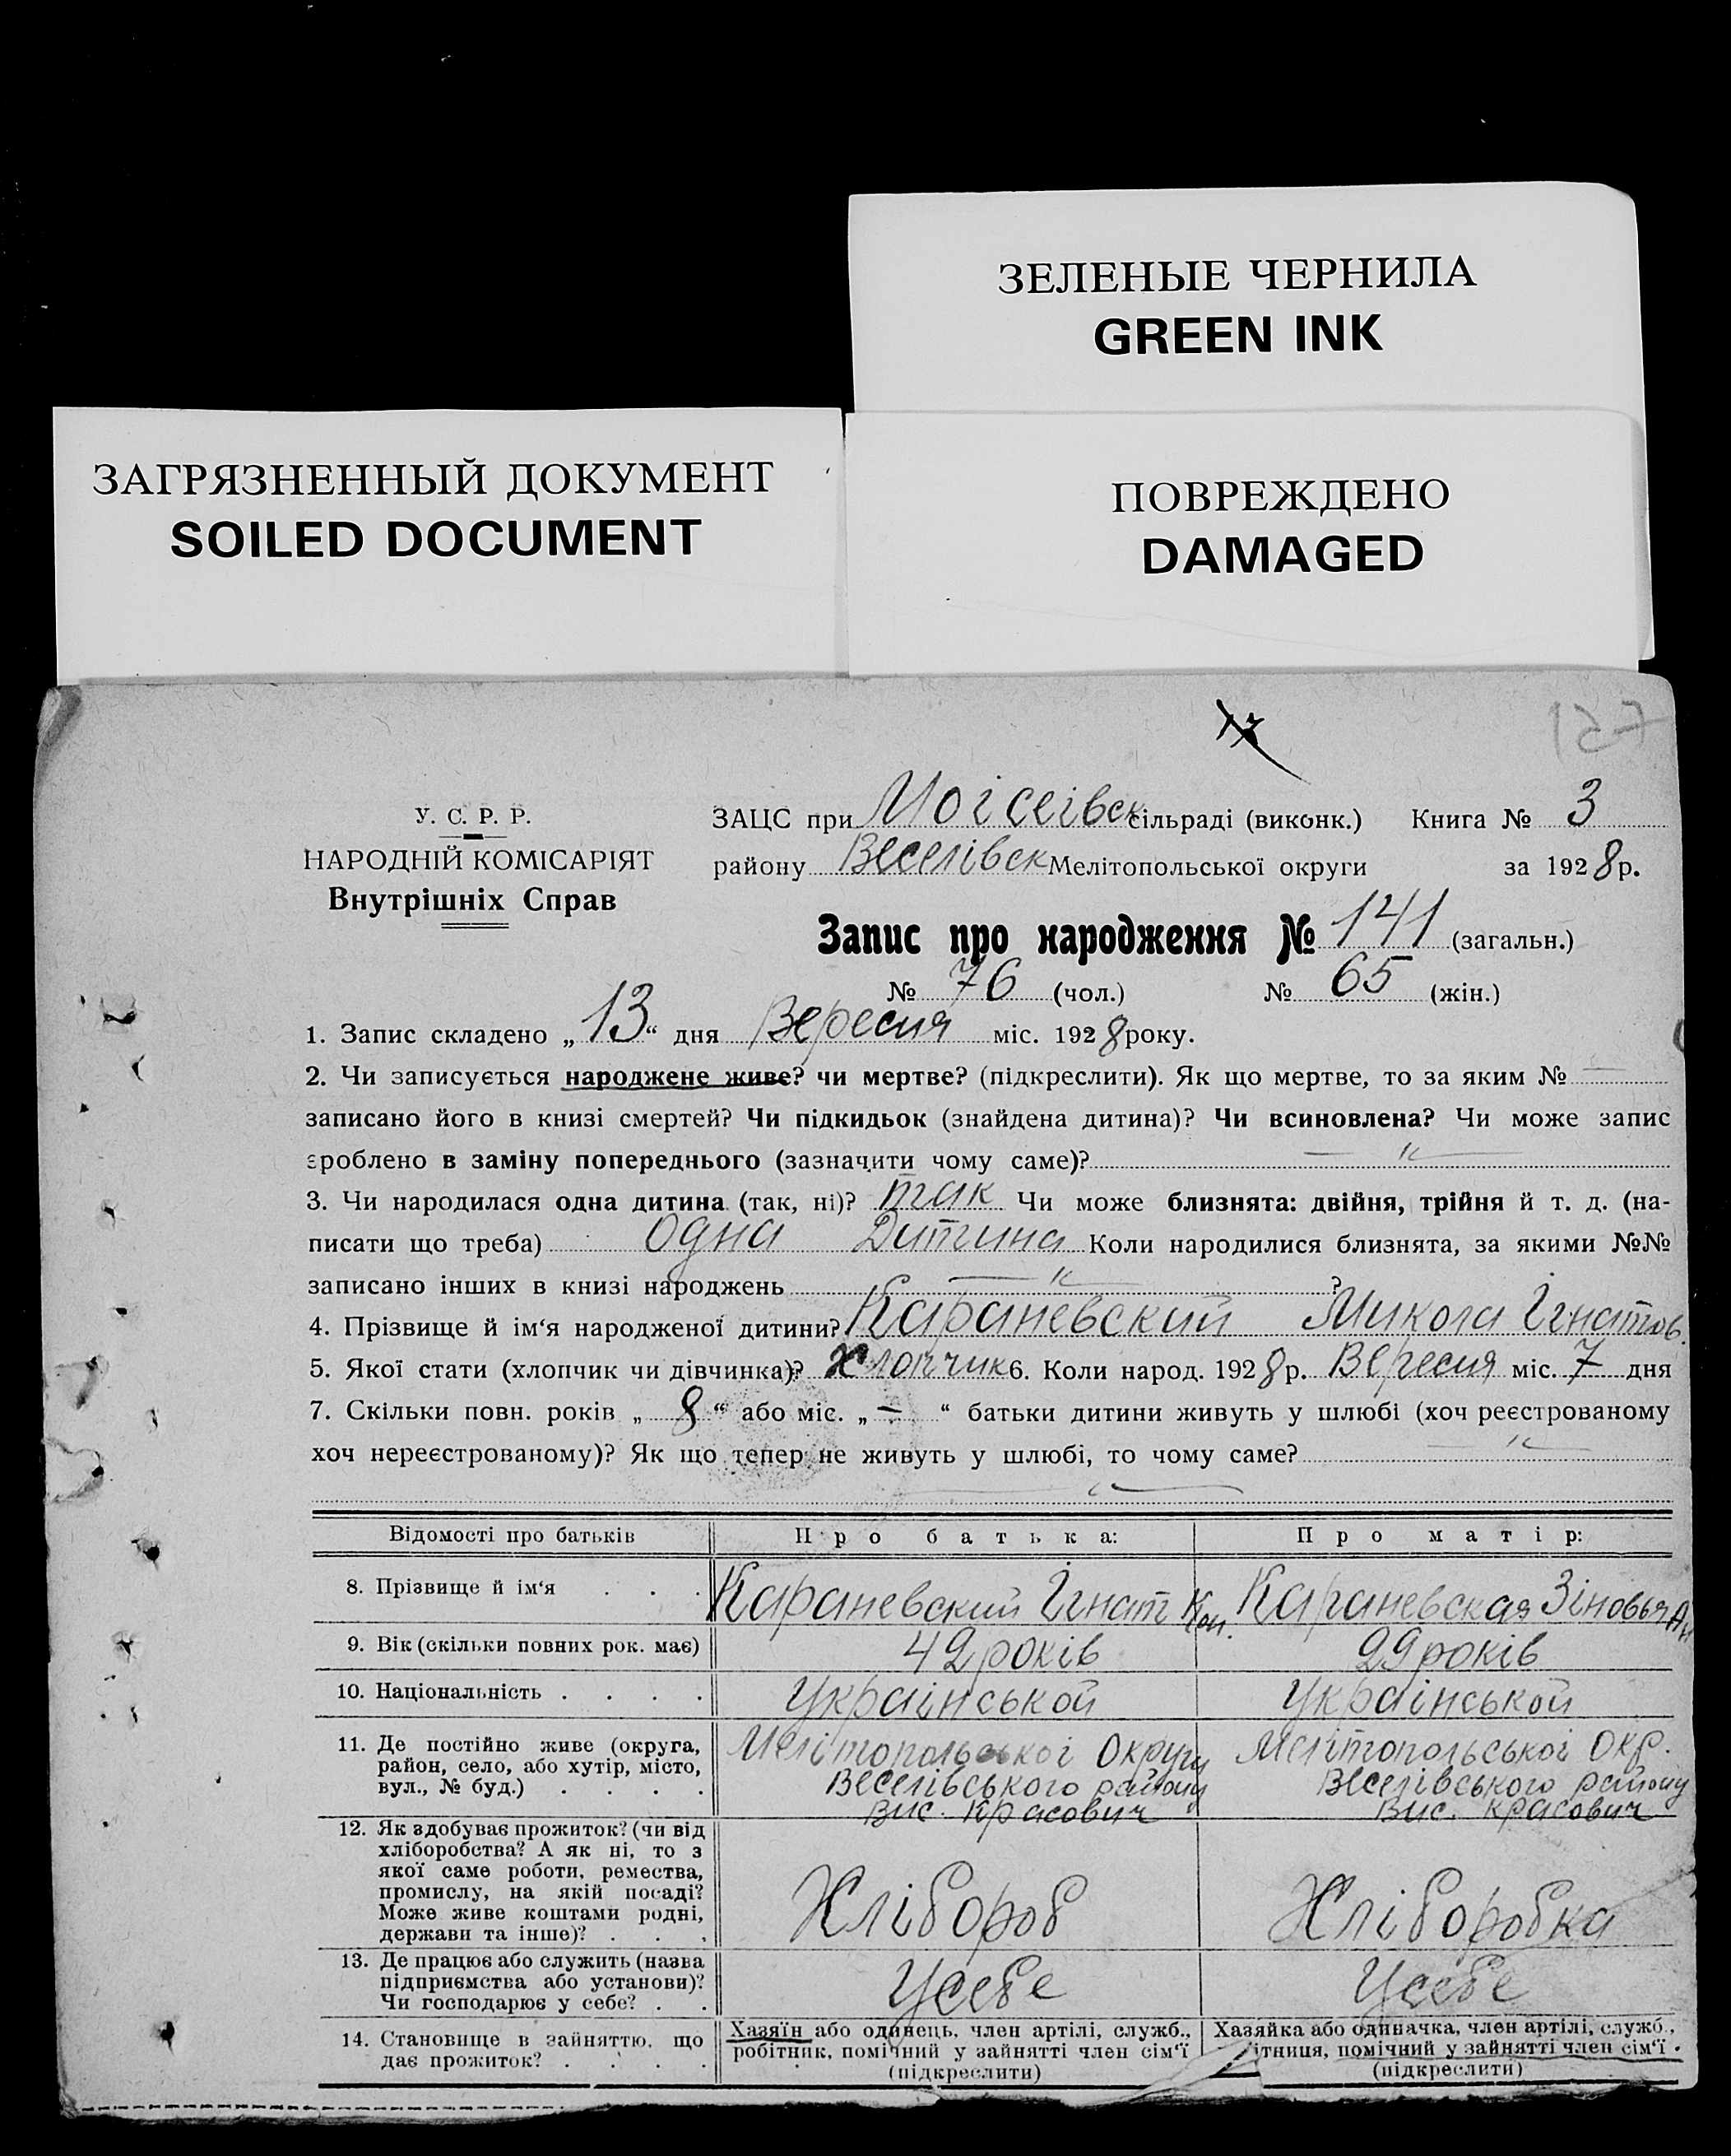 ЗЕЛЕНЫЕ ЧЕРНИЛА
GREEN INK
ЗАГРЯЗНЕННЫЙ ДОКУМЕНТ
SOILED DOCUMENT
ПОВРЕЖДЕНО
DAMAGED
127
У. С. Р. Р.
НАРОДНІЙ КОМІСАРІЯТ
Внутрішніх Справ
ЗАЦС при Моісеівск сільраді (виконк.) Книга № 3
району Веселівск Мелітопольської округи за 1928 р.
Запис про народження № 141 (загальн.)
№ 76 (чол.) № 65 (жін.)
1. Запис складено „13“ дня Вересня міс. 1928 року.
2. Чи записується народжене живе? чи мертве? (підкреслити). Як що мертве, то за яким № —
записано його в книзі смертей? Чи підкидьок (знайдена дитина)? Чи всиновлена? Чи може запис
зроблено в заміну попереднього (зазначити чому саме)? — „ —
3. Чи народилася одна дитина (так, ні)? так Чи може близнята: двійня, трійня й т. д. (на-
писати що треба) Одна Дитина Коли народилися близнята, за якими №№
записано інших в книзі народжень — „ — ?
4. Прізвище й ім‘я народженої дитини? Караневский Микола Ігнатов.
5. Якої стати (хлопчик чи дівчинка)? Хлопчик 6. Коли народ. 1928 р. Вересня міс. 7 дня
7. Скільки повн. років „8“ або міс. „—“ батьки дитини живуть у шлюбі (хоч реєстрованому
хоч нереєстрованому)? Як що тепер не живуть у шлюбі, то чому саме? — „ —
— „ —
Відомості про батьків Про батька: Про матір:
8. Прізвище й ім‘я . . . Караневский Ігнат Кон. Караневская Зіновья Ан
9. Вік (скільки повних рок. має) 42 років 29 років
10. Національність . . . . Украінськой Украінськой
11. Де постійно живе (округа, Мелітопольськоі Округи Мелітопольськоі Окр.
район, село, або хутір, місто, Веселівського району Веселівського району
вул., № буд.) . . . . Вис. Красович Вис. Красович
12. Як здобуває прожиток? (чи від
хліборобства? А як ні, то з
якої саме роботи, ремества,
промислу, на якій посаді? Хлібороб Хліборобка
Може живе коштами родні,
держави та інше)? . . .
13. Де працює або служить (назва
підприємства або установи)? Усебе Усебе
Чи господарює у себе? . .
14. Становище в зайняттю, що Хазяїн або одинець, член артілі, служб., Хазяйка або одиначка, член артілі, служб.,
дає прожиток? . . . . робітник, помічний у зайнятті член сім‘ї ітниця, помічний у зайнятті член сім‘ї
(підкреслити) (підкреслити)